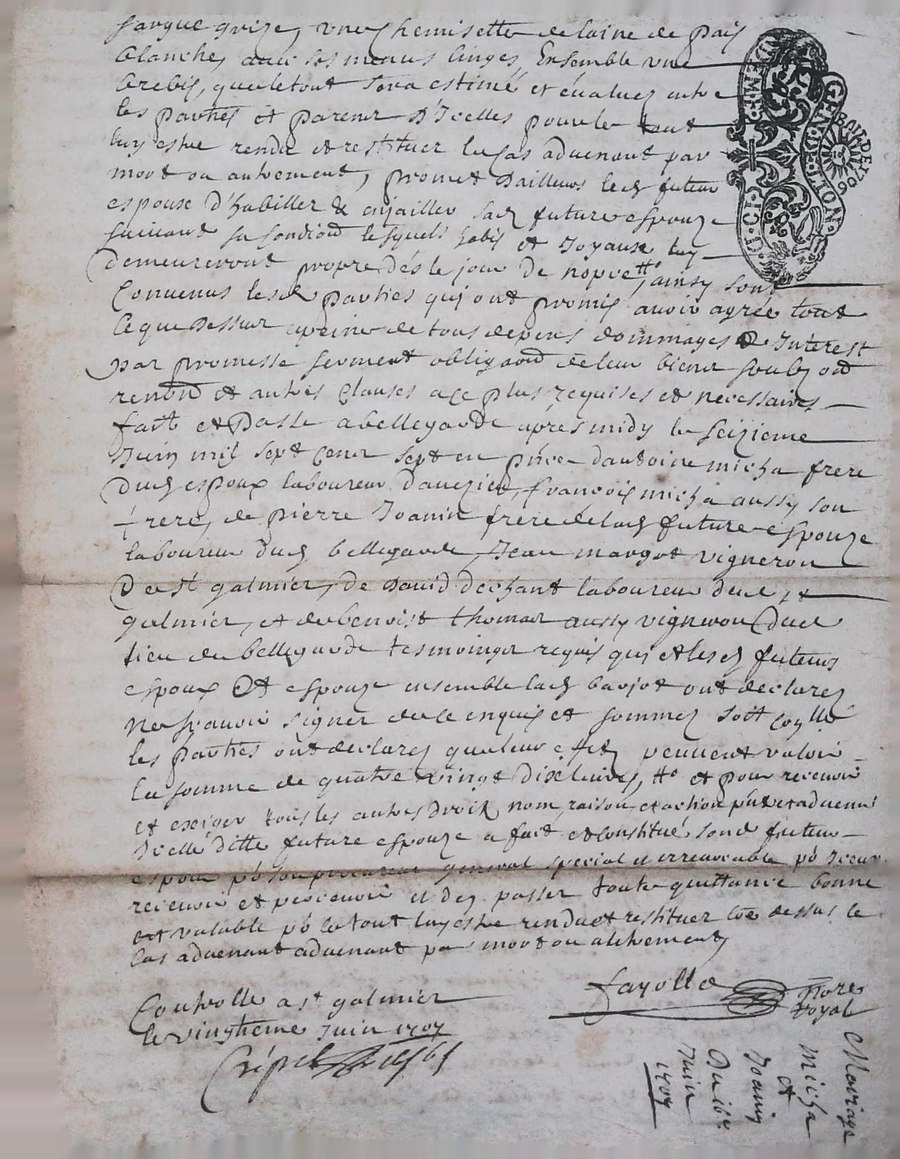 sargue grize, une chemisette de laine de païs
blanche, avec ses menus linges, Ensemble une
brebis, que le tout sera estimé et évalué entre
les parties et parens d'Icelles pour le tout
luy estre rendu et restituer le cas advenant par
mort ou autrement, promet d'ailleurs led futeur
espoux d'habiller & enjailler sad future espouze
suivant sa condiōn lesquels habis et Joyaux luy
demeureront propre dés le jour de nopce, ainsy sont
Convenus lesd parties qui ont promis avoir agrée tout
Ce que Dessus a peine de tous depens dommages & Interest
par promesse serment obligaōn de leur biens soubz
renōn et autres Clauses a ce plus requises et necessaires
fait et Passé a bellegarde aprés midy le seizieme
Juin mil sept cens sept en pñce d'antoine micha frere
dud espoux laboureur d'aveizieu, françois micha aussy son
frere, de pierre Joanin frere de lad future espouze
laboureur dud bellegarde, Jean margot vigneron
De St galmier, de David dechant laboureur dud St
galmier, et de benoist thomas aussy vigneron dud
lieu de bellegarde tesmoings requis qui et lesd futeurs
espoux Et espouze ensemble lad barjot ont declarez
ne sçavoir signer de ce enquis et sommez soit
les parties ont declarez que leur effetz peuvent valoir
la somme de quatre vingt dix livres, et pour recevoir
et exiger tous les autres Droits nom raison et action pñt et advenir
Icelle ditte future espouze a fait et constitué sond futeur
espoux pr son procureur general special et irrevocable pr Iceux
recevoir et percevoir et dez passer toute quittance bonne
et valable pr le tout luy estre rendu et restituer cõe dessus le
cas advenant advenant par mort ou autrement
fayolle nore royal
Controllé a St galmier
le vingtieme Juin 1707
Crépet
Mariage
micha
et
Joanin
Du 16e
Juin
1707
GEN. DE LION